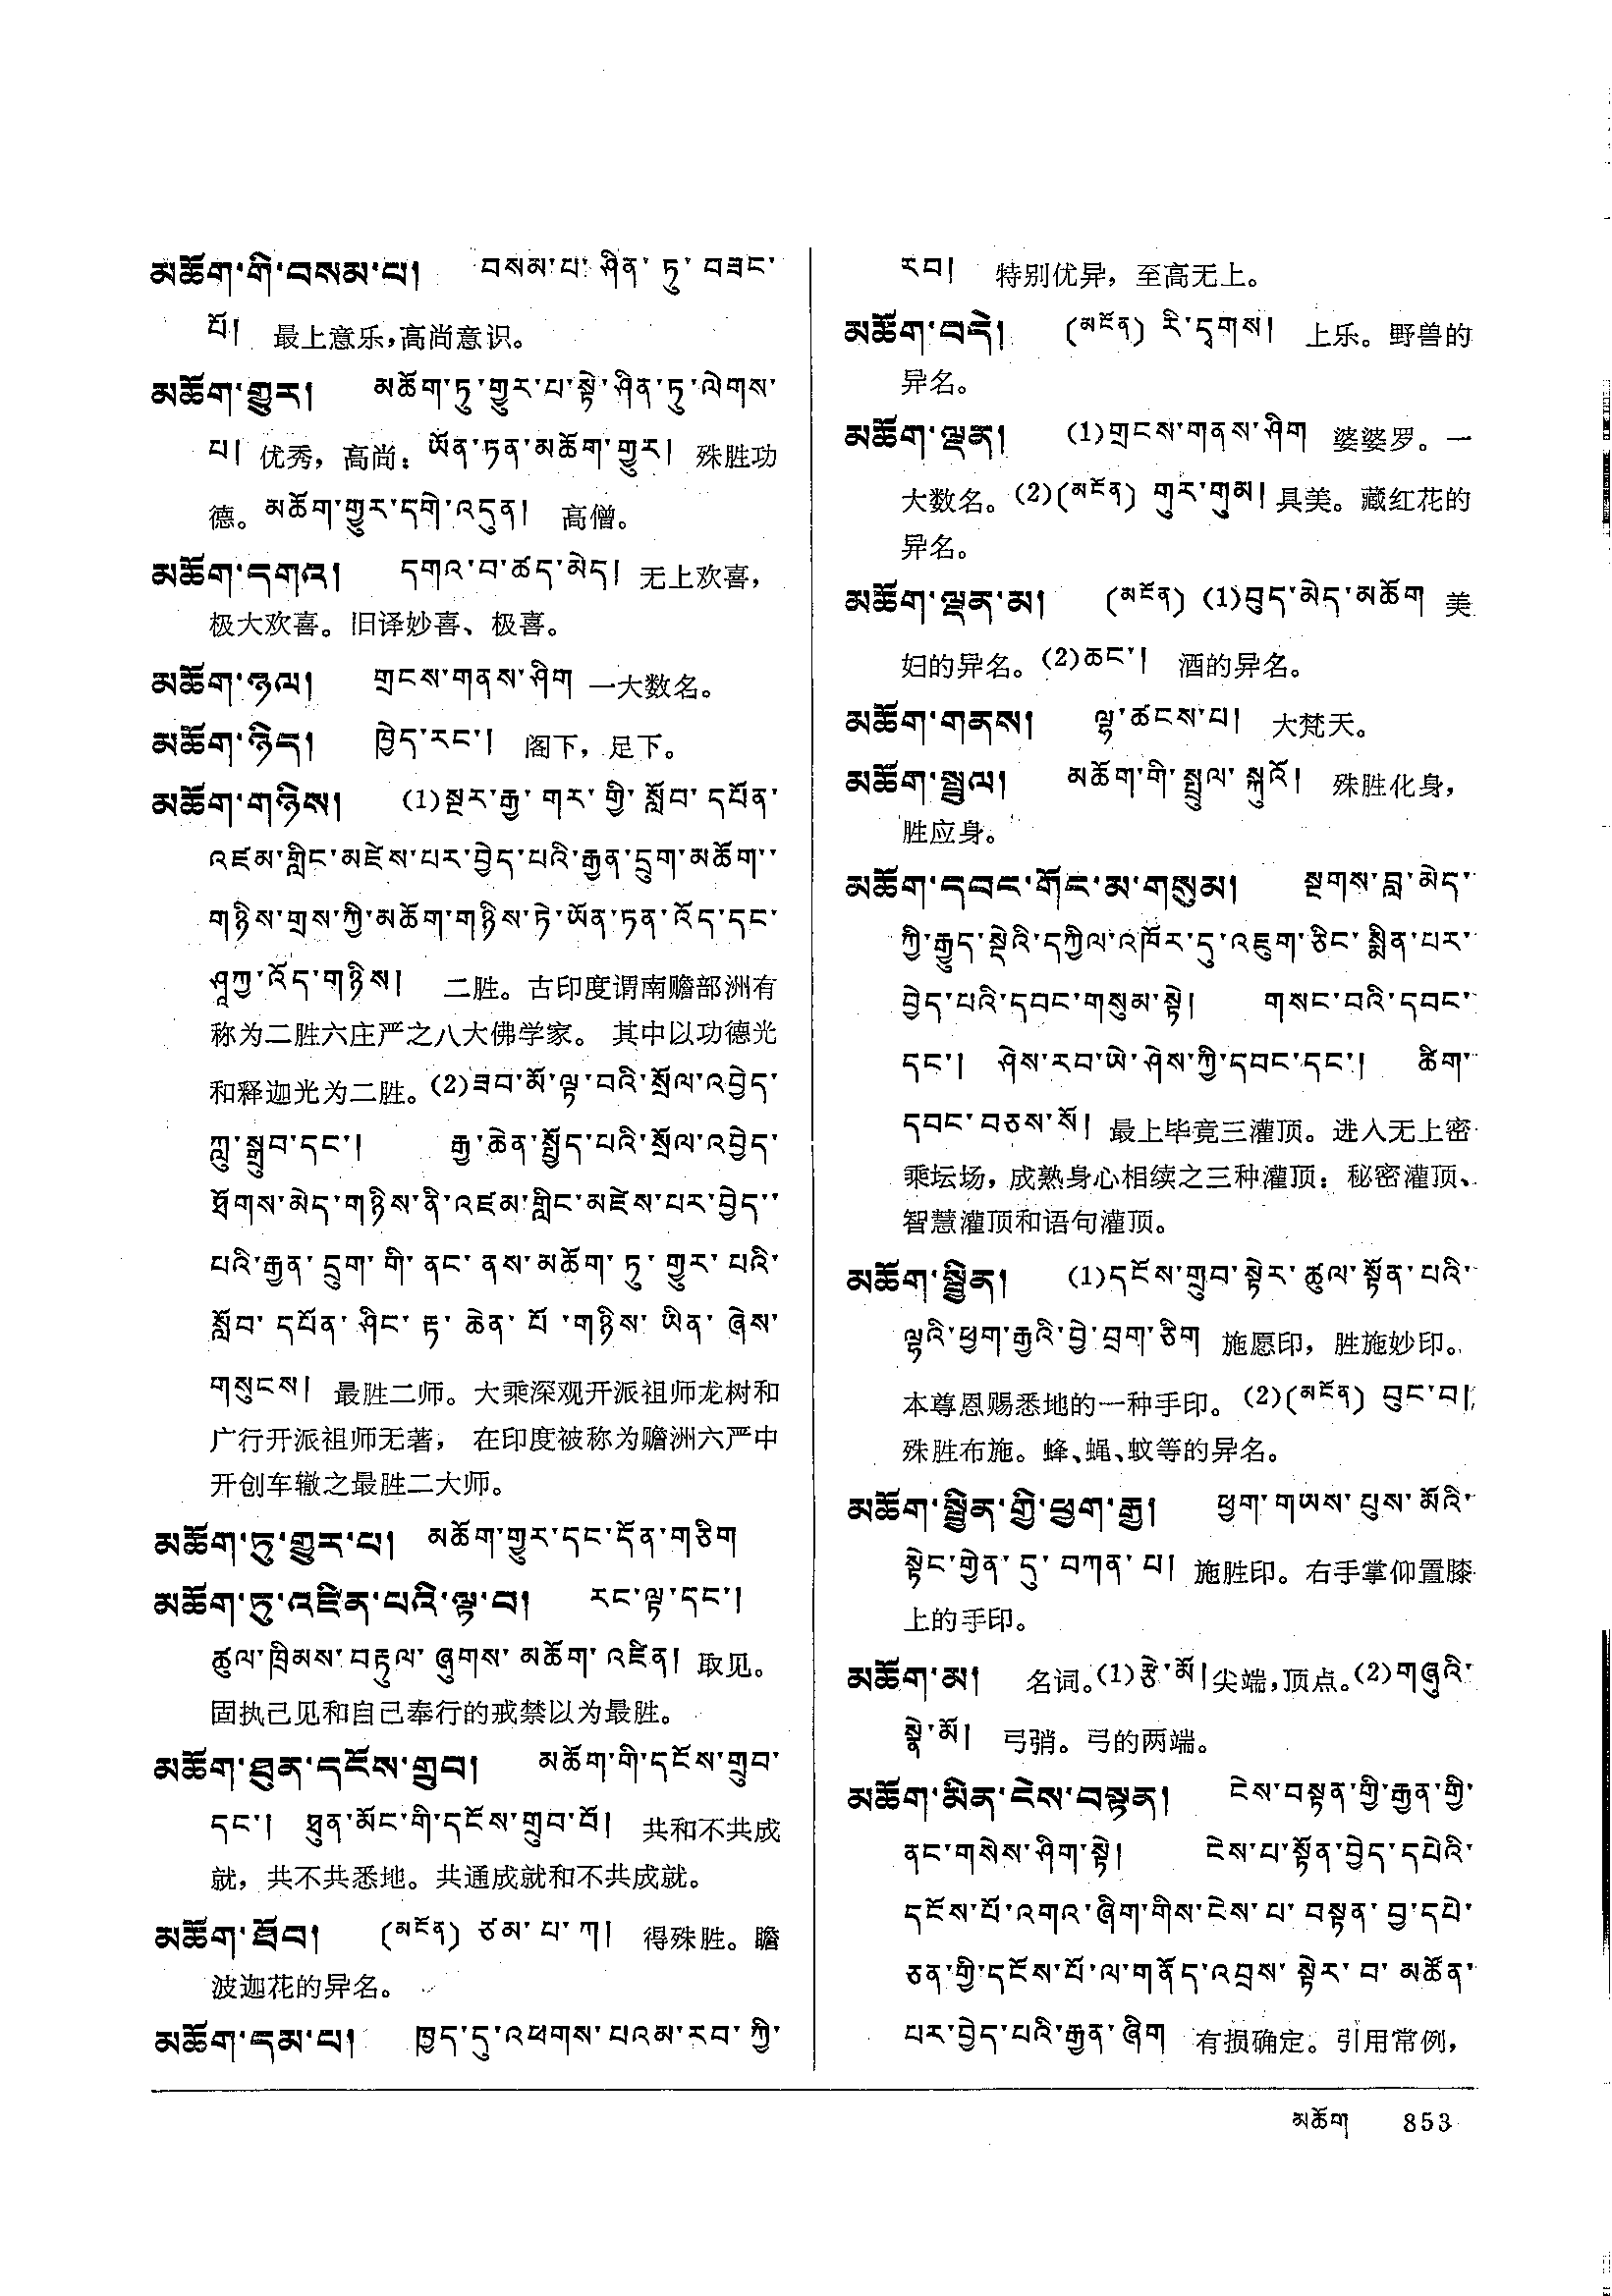 མཆོག་གི་བསམ་པ། བསམ་པ་ཤིན་ཏུ་བཟང་
པོ། 最上意乐,高尚意识。
མཆོག་གྱུར། མཆོག་ཏུ་གྱུར་པ་སྟེ་ཤིན་ཏུ་ལེགས་
པ། 优秀，高尚：ཡོན་ཏན་མཆོག་གྱུར། 殊胜功
德。མཆོག་གྱུར་དགེ་འདུན། 高僧。
མཆོག་དགའ། དགའ་བ་ཚད་མེད། 无上欢喜，
极大欢喜。旧译妙喜、极喜。
མཆོག་ཉལ། གྲངས་གནས་ཤིག 一大数名。
མཆོག་ཉིད། ཁྱེད་རང་། 阁下，足下。
མཆོག་གཉིས། (1)སྔར་རྒྱ་གར་གྱི་སློབ་དཔོན་
འཛམ་གླིང་མཛེས་པར་བྱེད་པའི་རྒྱན་དྲུག་མཆོག་
གཉིས་གྲས་ཀྱི་མཆོག་གཉིས་ཏེ་ཡོན་ཏན་འོད་དང་
ཤཱཀྱ་འོད་གཉིས། 二胜。古印度谓南赡部洲有
称为二胜六庄严之八大佛学家。其中以功德光
和释迦光为二胜。(2)ཟབ་མོ་ལྟ་བའི་སྲོལ་འབྱེད་
ཀླུ་སྒྲུབ་དང་། རྒྱ་ཆེན་སྤྱོད་པའི་སྲོལ་འབྱེད་
ཐོགས་མེད་གཉིས་ནི་འཛམ་གླིང་མཛེས་པར་བྱེད་
པའི་རྒྱན་དྲུག་གི་ནང་ནས་མཆོག་ཏུ་གྱུར་པའི་
སློབ་དཔོན་ཤིང་རྟ་ཆེན་པོ་གཉིས་ཡིན་ཞེས་
གསུངས། 最胜二师。大乘深观开派祖师龙树和
广行开派祖师无著，在印度被称为赡洲六严中
开创车辙之最胜二大师。
མཆོག་ཏུ་གྱུར་པ། མཆོག་གྱུར་དང་དོན་གཅིག
མཆོག་ཏུ་འཛིན་པའི་ལྟ་བ། རང་ལྟ་དང་།
ཚུལ་ཁྲིམས་བརྟུལ་ཞུགས་མཆོག་འཛིན། 取见。
固执己见和自己奉行的戒禁以为最胜。
མཆོག་ཐུན་དངོས་གྲུབ། མཆོག་གི་དངོས་གྲུབ་
དང་། ཐུན་མོང་གི་དངོས་གྲུབ་བོ། 共和不共成
就，共不共悉地。共通成就和不共成就。
མཆོག་ཐོབ། (མངོན) ཙམ་པ་ཀ། 得殊胜。瞻
波迦花的异名。
མཆོག་དམ་པ། ཁྱད་དུ་འཕགས་པའམ་རབ་ཀྱི་
རབ། 特别优异，至高无上。
མཆོག་བདེ། (མངོན) རི་དྭགས། 上乐。野兽的
异名。
མཆོག་ལྡན། (1)གྲངས་གནས་ཤིག 婆婆罗。一
大数名。(2)(མངོན) གུར་གུམ། 具美。藏红花的
异名。
མཆོག་ལྡན་མ། (མངོན) (1)བུད་མེད་མཆོག 美
妇的异名。(2)ཆང་། 酒的异名。
མཆོག་གནས། ལྷ་ཚངས་པ། 大梵天。
མཆོག་སྤྲུལ། མཆོག་གི་སྤྲུལ་སྐུའོ། 殊胜化身，
胜应身。
མཆོག་དབང་གོང་མ་གསུམ། སྔགས་བླ་མེད་
ཀྱི་རྒྱུད་སྡེའི་དཀྱིལ་འཁོར་དུ་འཇུག་ཅིང་སྨིན་པར་
བྱེད་པའི་དབང་གསུམ་སྟེ། གསང་བའི་དབང་
དང་། ཤེས་རབ་ཡེ་ཤེས་ཀྱི་དབང་དང་། ཚིག་
དབང་བཅས་སོ། 最上毕竟三灌顶。进入无上密
乘坛场，成熟身心相续之三种灌顶：秘密灌顶、
智慧灌顶和语句灌顶。
མཆོག་སྦྱིན། (1)དངོས་གྲུབ་སྟེར་ཚུལ་སྟོན་པའི་
ལྷའི་ཕྱག་རྒྱའི་བྱེ་བྲག་ཅིག 施愿印，胜施妙印。
本尊恩赐悉地的一种手印。(2)(མངོན) བུང་བ།
殊胜布施。蜂、蝇、蚊等的异名。
མཆོག་སྦྱིན་གྱི་ཕྱག་རྒྱ། ཕྱག་གཡས་པུས་མོའི་
སྟེང་གྱེན་དུ་བཀན་པ། 施胜印。右手掌仰置膝
上的手印。
མཆོག་མ། 名词。(1)རྩེ་མོ།尖端,顶点。(2)གཞུའི་
སྣེ་མོ། 弓弰。弓的两端。
མཆོག་མིན་ངེས་བསྟན། ངེས་བསྟན་གྱི་རྒྱན་གྱི་
ནང་གསེས་ཤིག་སྟེ། ངེས་པ་སྟོན་བྱེད་དཔེའི་
དངོས་པོ་འགའ་ཞིག་གིས་ངེས་པ་བསྟན་བྱ་དཔེ་
ཅན་གྱི་དངོས་པོ་ལ་གནོད་འབྲས་སྟེར་བ་མཚོན་
པར་བྱེད་པའི་རྒྱན་ཞིག 有损确定。引用常例，
མཆོག 853